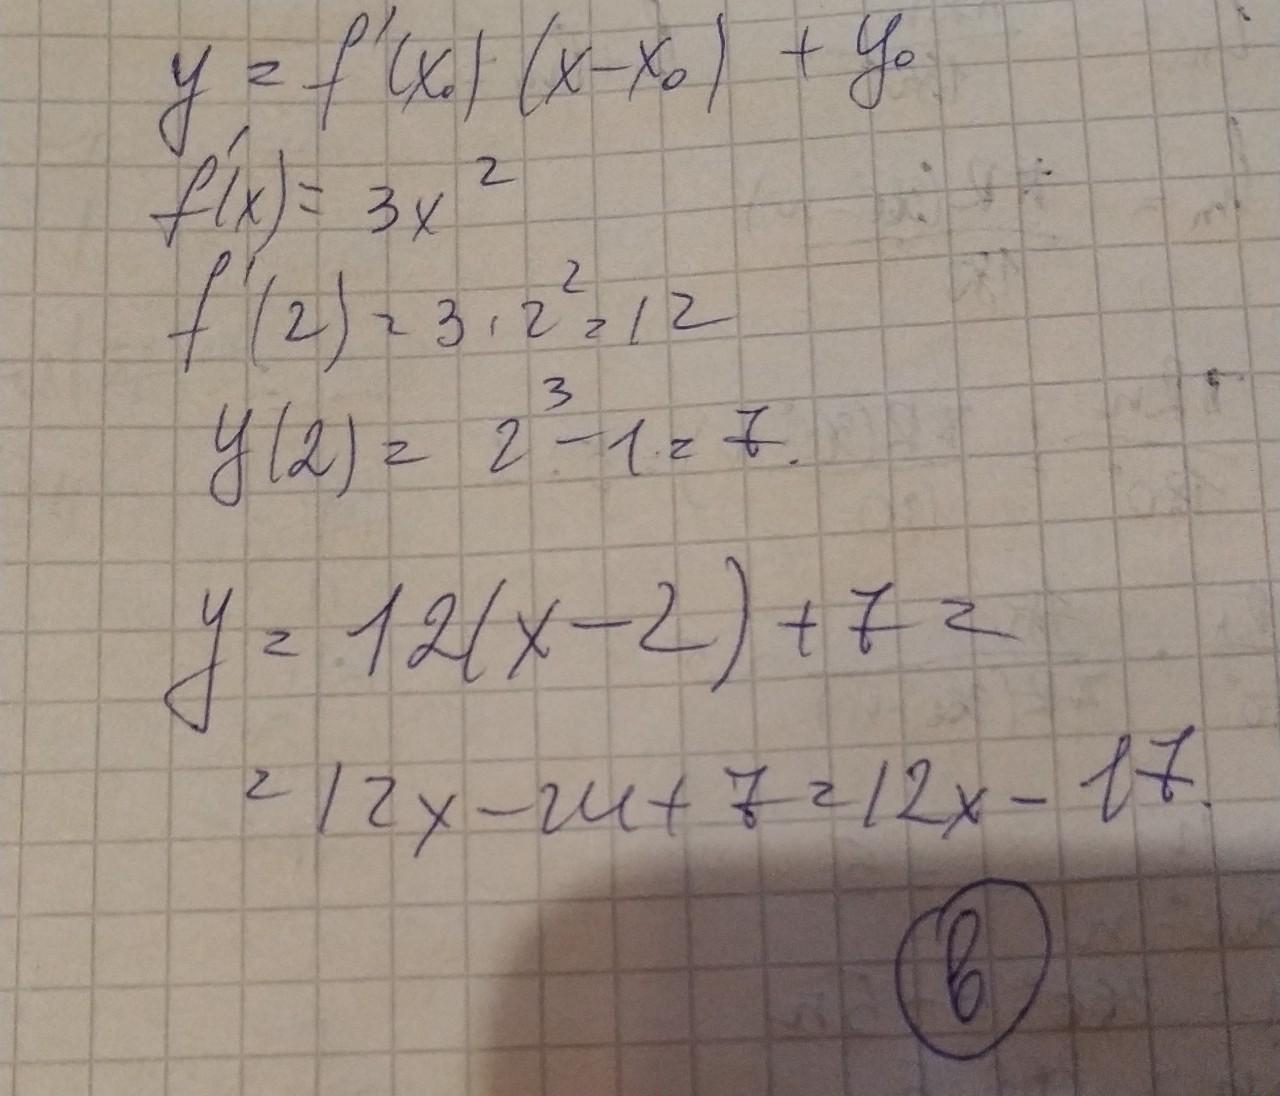 y = f'(x₀) (x-x₀) + y₀
f'(x) = 3x²
f'(2) = 3·2² = 12
y(2) = 2³-1 = 7.
y = 12(x-2)+7 =
= 12x-24+7=12x-17.
в